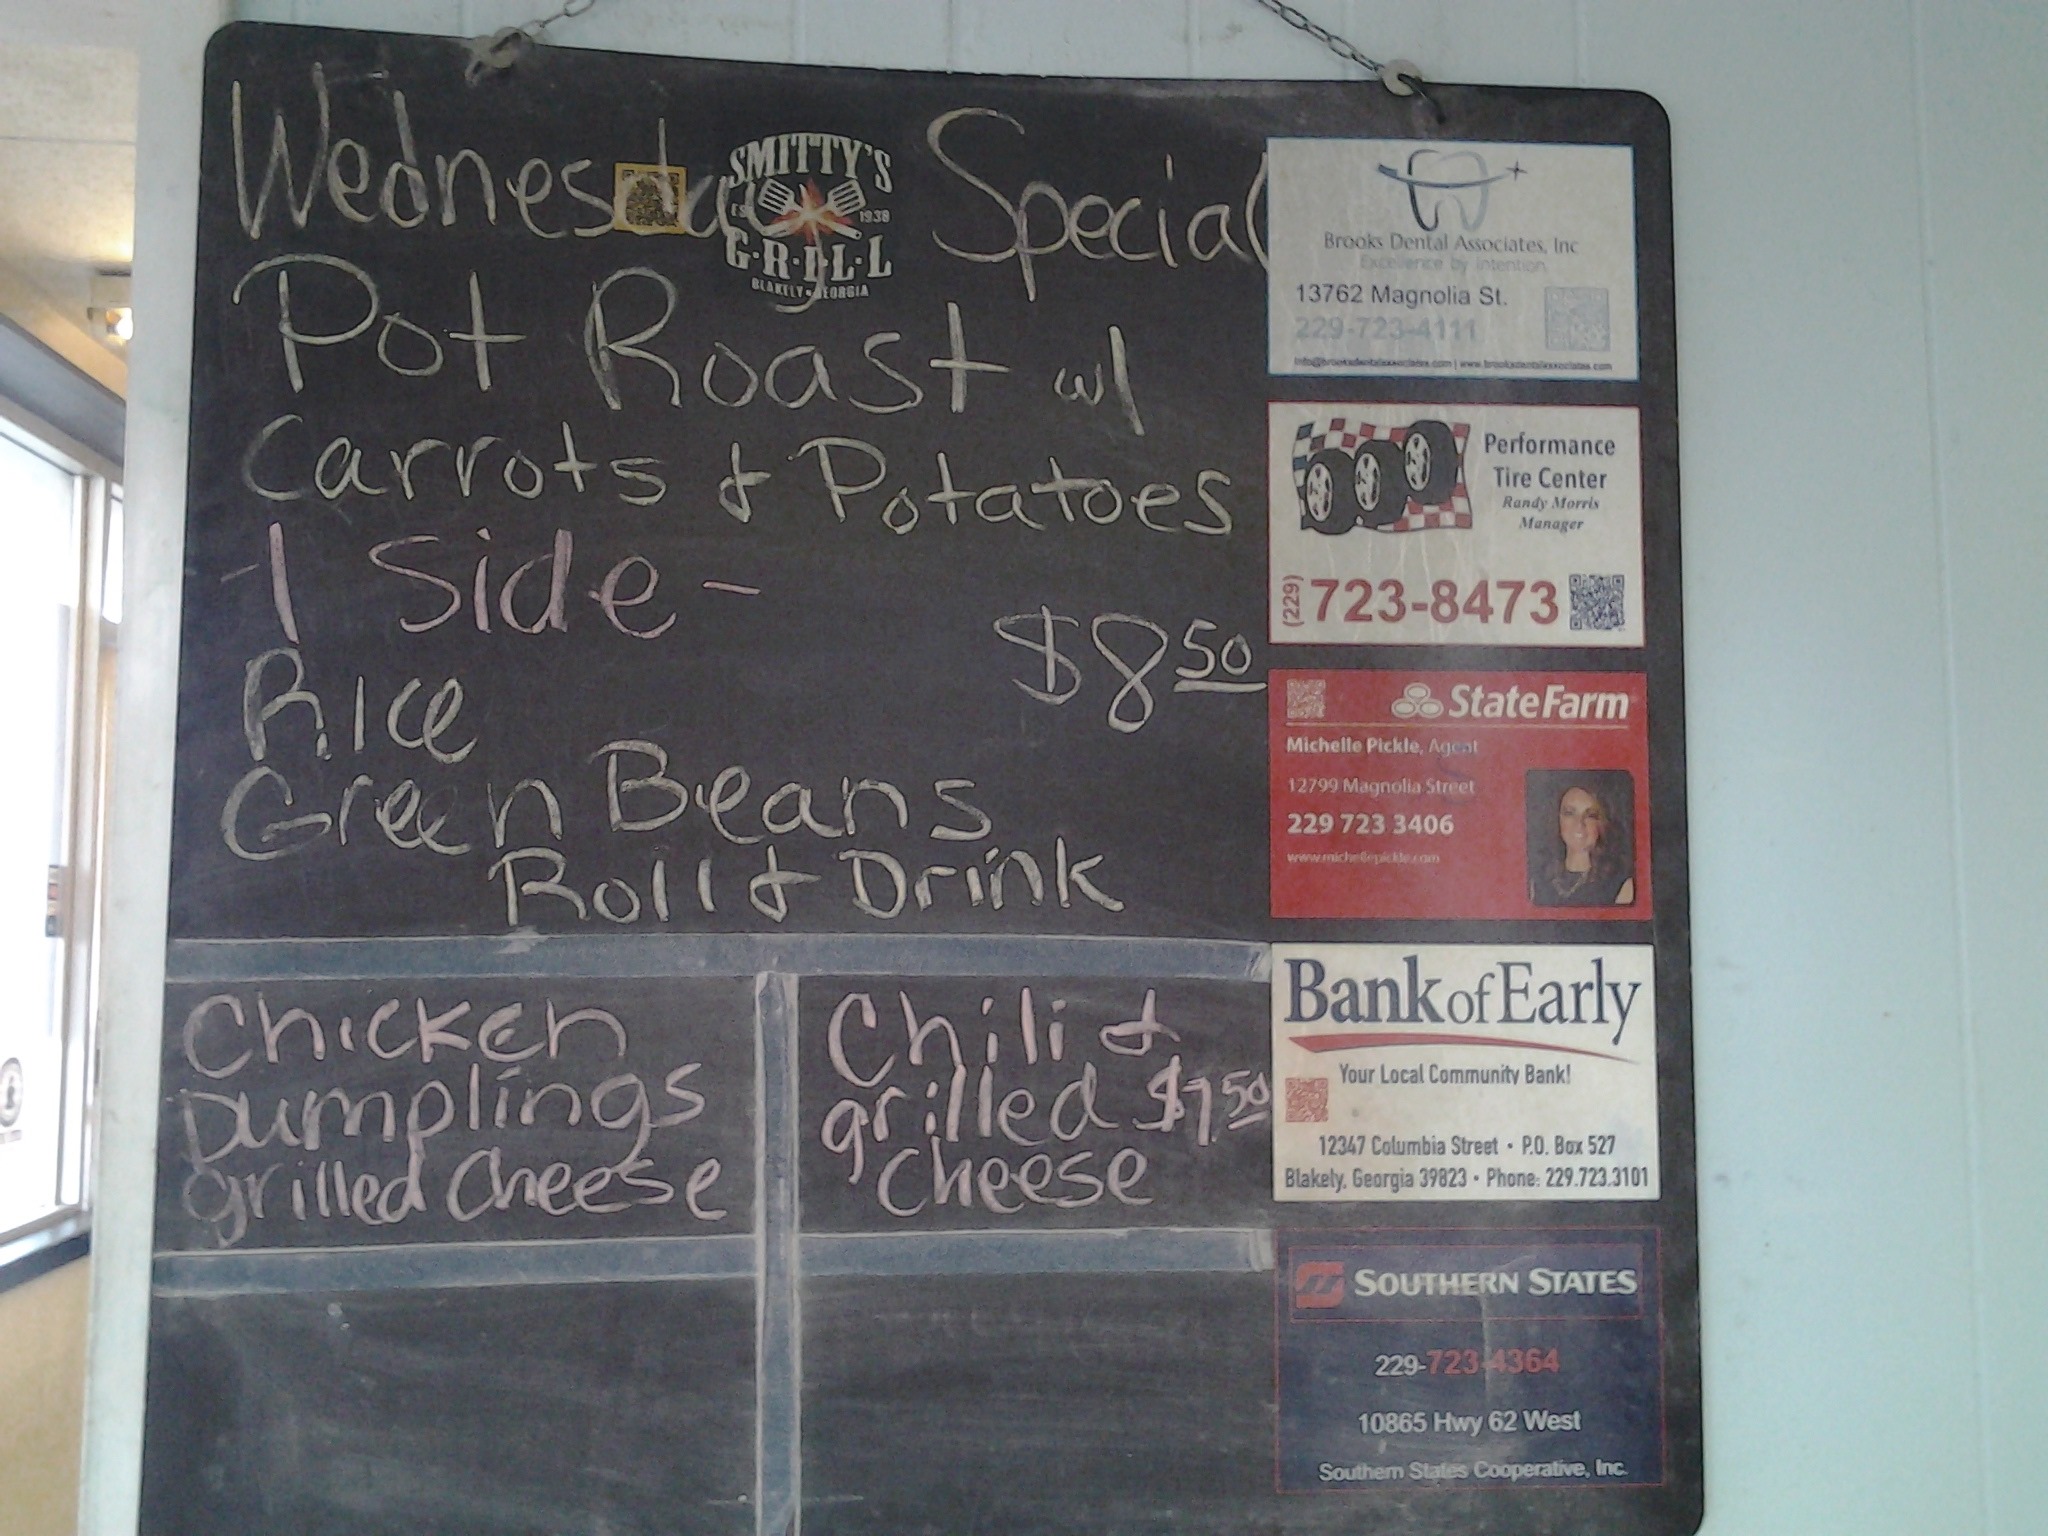 Wednesday Special
SMITTY'S
1938
G·R·I·L·L
BLAKELY GEORGIA
Pot Roast w/
Carrots & Potatoes
-1 Side-
$8.50
Rice
Green Beans
Roll & Drink
Chicken
Dumplings
grilled cheese
Chili &
grilled $7.50
cheese
Brooks Dental Associates, Inc
Excellence by Intention
13762 Magnolia St.
229-723-4111
info@brooksdentalassociates.com | www.brooksdentalassociates.com
Performance
Tire Center
Randy Morris
Manager
(229) 723-8473
StateFarm
Michelle Pickle, Agent
12799 Magnolia Street
229 723 3406
www.michellepickle.com
Bank of Early
Your Local Community Bank!
12347 Columbia Street • P.O. Box 527
Blakely, Georgia 39823 • Phone: 229.723.3101
SOUTHERN STATES
229-723-4364
10865 Hwy 62 West
Southern States Cooperative, Inc.